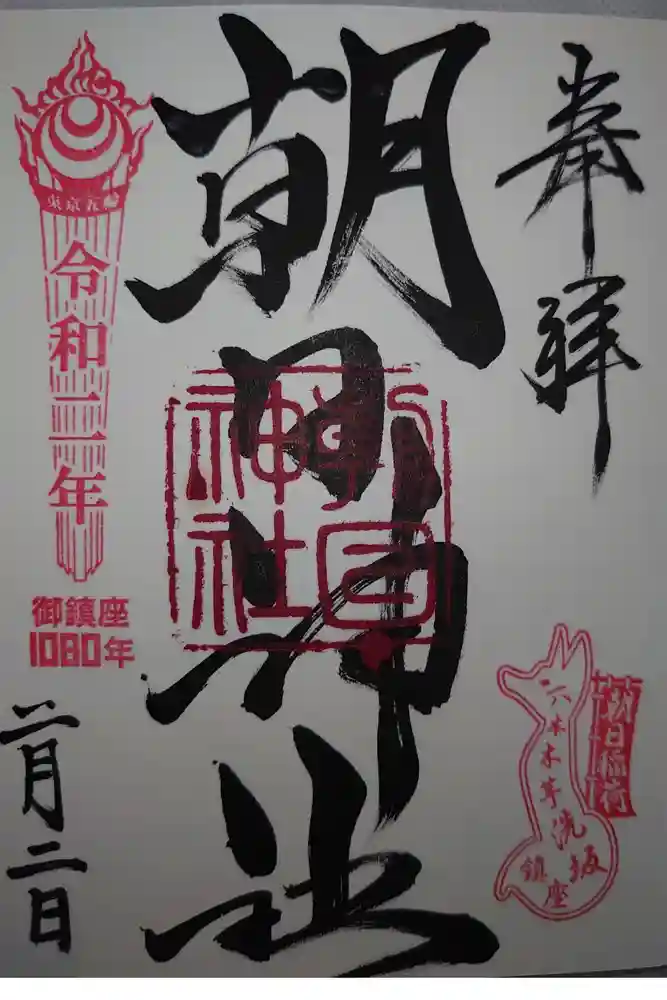 奉拝
朝日神社
朝日神社
東京五輪
令和二年
御鎮座
1080年
二月二日
朝日稲荷
六本木芋洗坂
鎮座